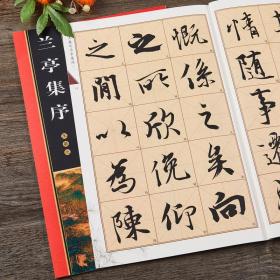 情隨事遷
慨係之矣向
之所欣俛仰
之閒以為陳
兰亭集序